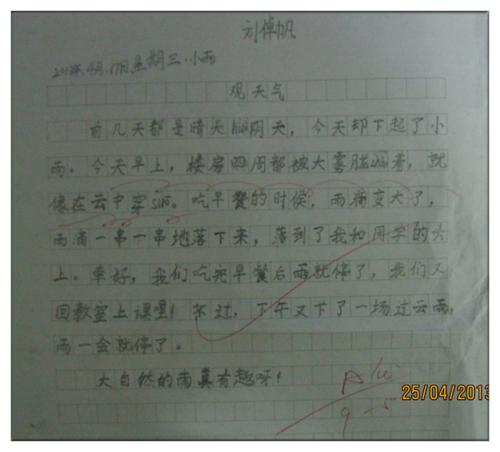 刘倬帆
2013年4月17日星期三.小雨
观天气
前几天都是晴天huò阴天，今天却下起了小
雨。今天早上，楼房四周都被大雾胧zhào着，就
像在云中穿suō。吃早餐的时候，雨滴变大了，
雨滴一串一串地落下来，落到了我和同学的头
上。幸好，我们吃完早餐后雨就停了，我们又
回教室上课哩！不过，下午又下了一场过云雨，
雨一会就停了。
大自然的雨真有趣呀！
25/04/2013